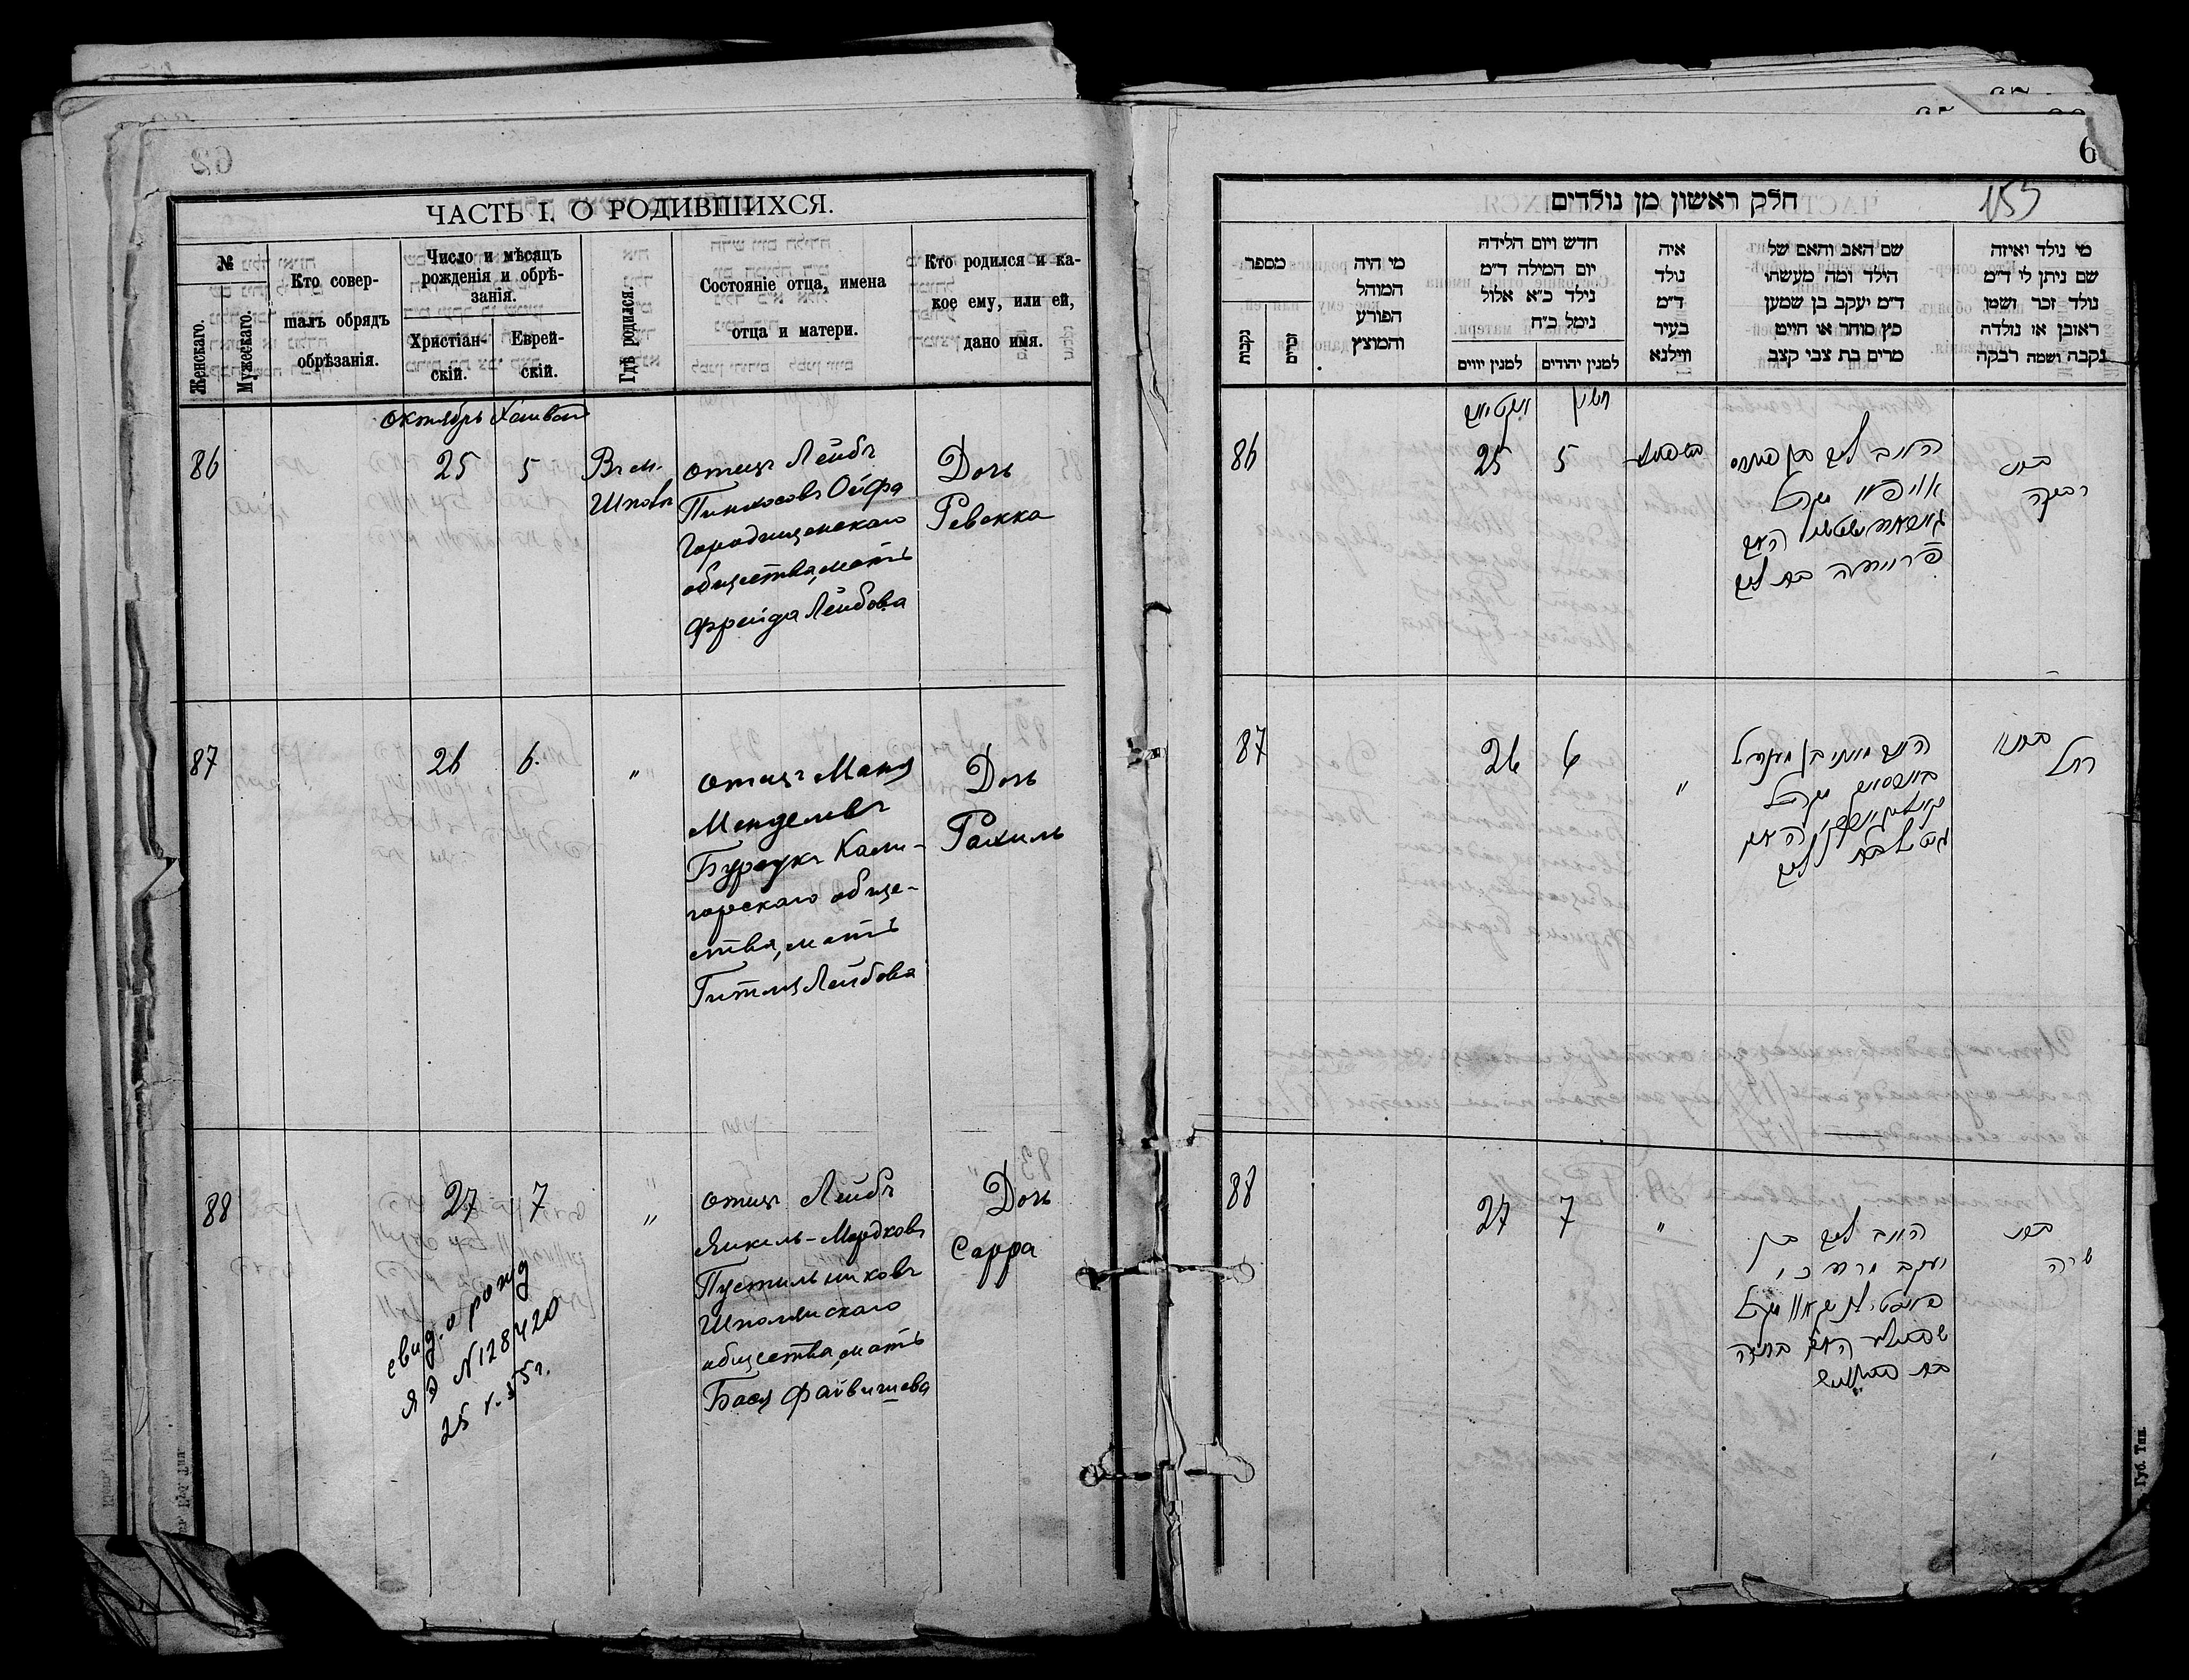 ЧАСТЬ I. О РОДИВШИХСЯ.
№
Женскаго.
Мужескаго.
Кто совер-
шалъ обрядъ
обрѣзанія.
Число и мѣсяцъ
рожденія и обрѣ-
занія.
Христіан-
скій.
Еврей-
скій.
Гдѣ родился.
Состояніе отца, имена
отца и матери.
Кто родился и ка-
кое ему, или ей,
дано имя.
октябрь Хешван
86
25
5
Въ м.
Шполѣ
отецъ Лейбъ
Пинхосовъ Ойфа
Городищенскаго
общества, мать
Фрейда Лейбова
Дочь
Ревекка
87
26
6.
"
отецъ Маня
Менделевъ
Бурсукъ Кали-
горскаго обще-
ства, мать
Гитля Лейбова
Дочь
Рахиль
88
27
7
"
отецъ Лейбъ
Янкель-Мордковъ
Пустильниковъ
Шполянскаго
общества, мать
Бася Файвишева
Дочь
Сарра
свид. о рожд
ЯЭ №128420
חלק ראשון מן נולדים
153
מספר
נקבות
זכרים
מי היה
המוהל
הפורע
והמוצץ
חדש ויום הלידה
יום המילה ד״מ
נילד כ״א אלול
נימל כ״ח
למנין יווים
למנין יהודים
איה
נולד
ד״מ
בעיר
ווילנא
שם האב והאם של
הילד ומה מעשהו
ד״מ יעקב בן שמען
כץ סוחר או חייט
מרים בת צבי קצב
מי נולד ואיזה
שם ניתן לי ד״מ
נולד זכר ושמו
ראובן או נולדה
נקבה ושמה רבקה
חשון
86
25
5
האב ליב בן פנחס
בת
רבקה
87
26
6
"
רחל
88
27
7
"
האב ליב בן
יעקב מרדכי
בת
שרה
Губ. Тип.